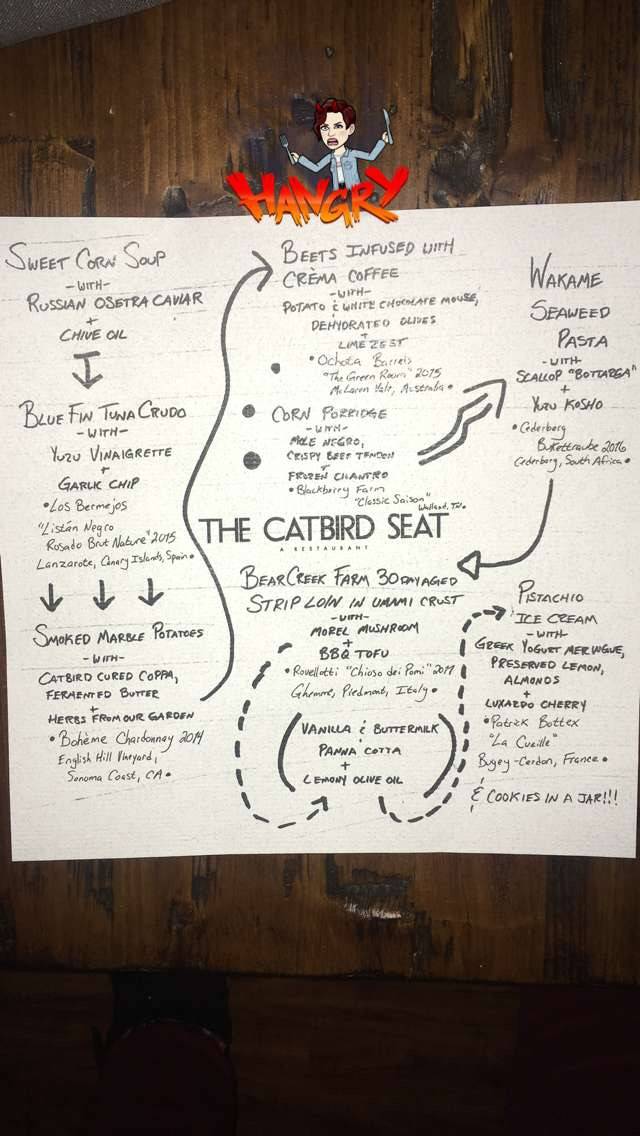 HANGRY
SWEET CORN SOUP
-WITH-
RUSSIAN OSETRA CAVIAR
+
CHIVE OIL
BLUE FIN TUNA CRUDO
-WITH-
YUZU VINAIGRETTE
+
GARLIC CHIP
•Los Bermejos
"Listán Negro
Rosado Brut Nature" 2015
Lanzarote, Canary Islands, Spain•
SMOKED MARBLE POTATOES
-WITH-
CATBIRD CURED COPPA,
FERMENTED BUTTER
+
HERBS FROM OUR GARDEN
• Bohème Chardonnay 2014
English Hill Vineyard,
Sonoma Coast, CA•
BEETS INFUSED WITH
CRÈMA COFFEE
-WITH-
POTATO & WHITE CHOCOLATE MOUSE,
DEHYDRATED OLIVES
+
LIME ZEST
•Ochota Barrels
"The Green Room" 2015
McLaren Vale, Australia•
CORN PORRIDGE
-WITH-
MOLE NEGRO,
CRISPY BEEF TENDON
+
FROZEN CILANTRO
•Blackberry Farm
"Classic Saison"
Walland, TN•
WAKAME
SEAWEED
PASTA
-WITH-
SCALLOP "BOTTARGA"
+
YUZU KOSHO
•Cederberg
Bukettraube 2016
Cederberg, South Africa•
THE CATBIRD SEAT
A RESTAURANT
BEAR CREEK FARM 30 DAY AGED
STRIP LOIN IN UMAMI CRUST
-WITH-
MOREL MUSHROOM
+
BBQ TOFU
•Rovellotti "Chioso dei Pomi" 2011
Ghemme, Piedmont, Italy•
VANILLA & BUTTERMILK
PANNA COTTA
+
LEMONY OLIVE OIL
PISTACHIO
ICE CREAM
-WITH-
GREEK YOGURT MERINGUE,
PRESERVED LEMON,
ALMONDS
+
LUXARDO CHERRY
•Patrick Bottex
"La Cueille"
Bugey-Cerdon, France•
& COOKIES IN A JAR!!!